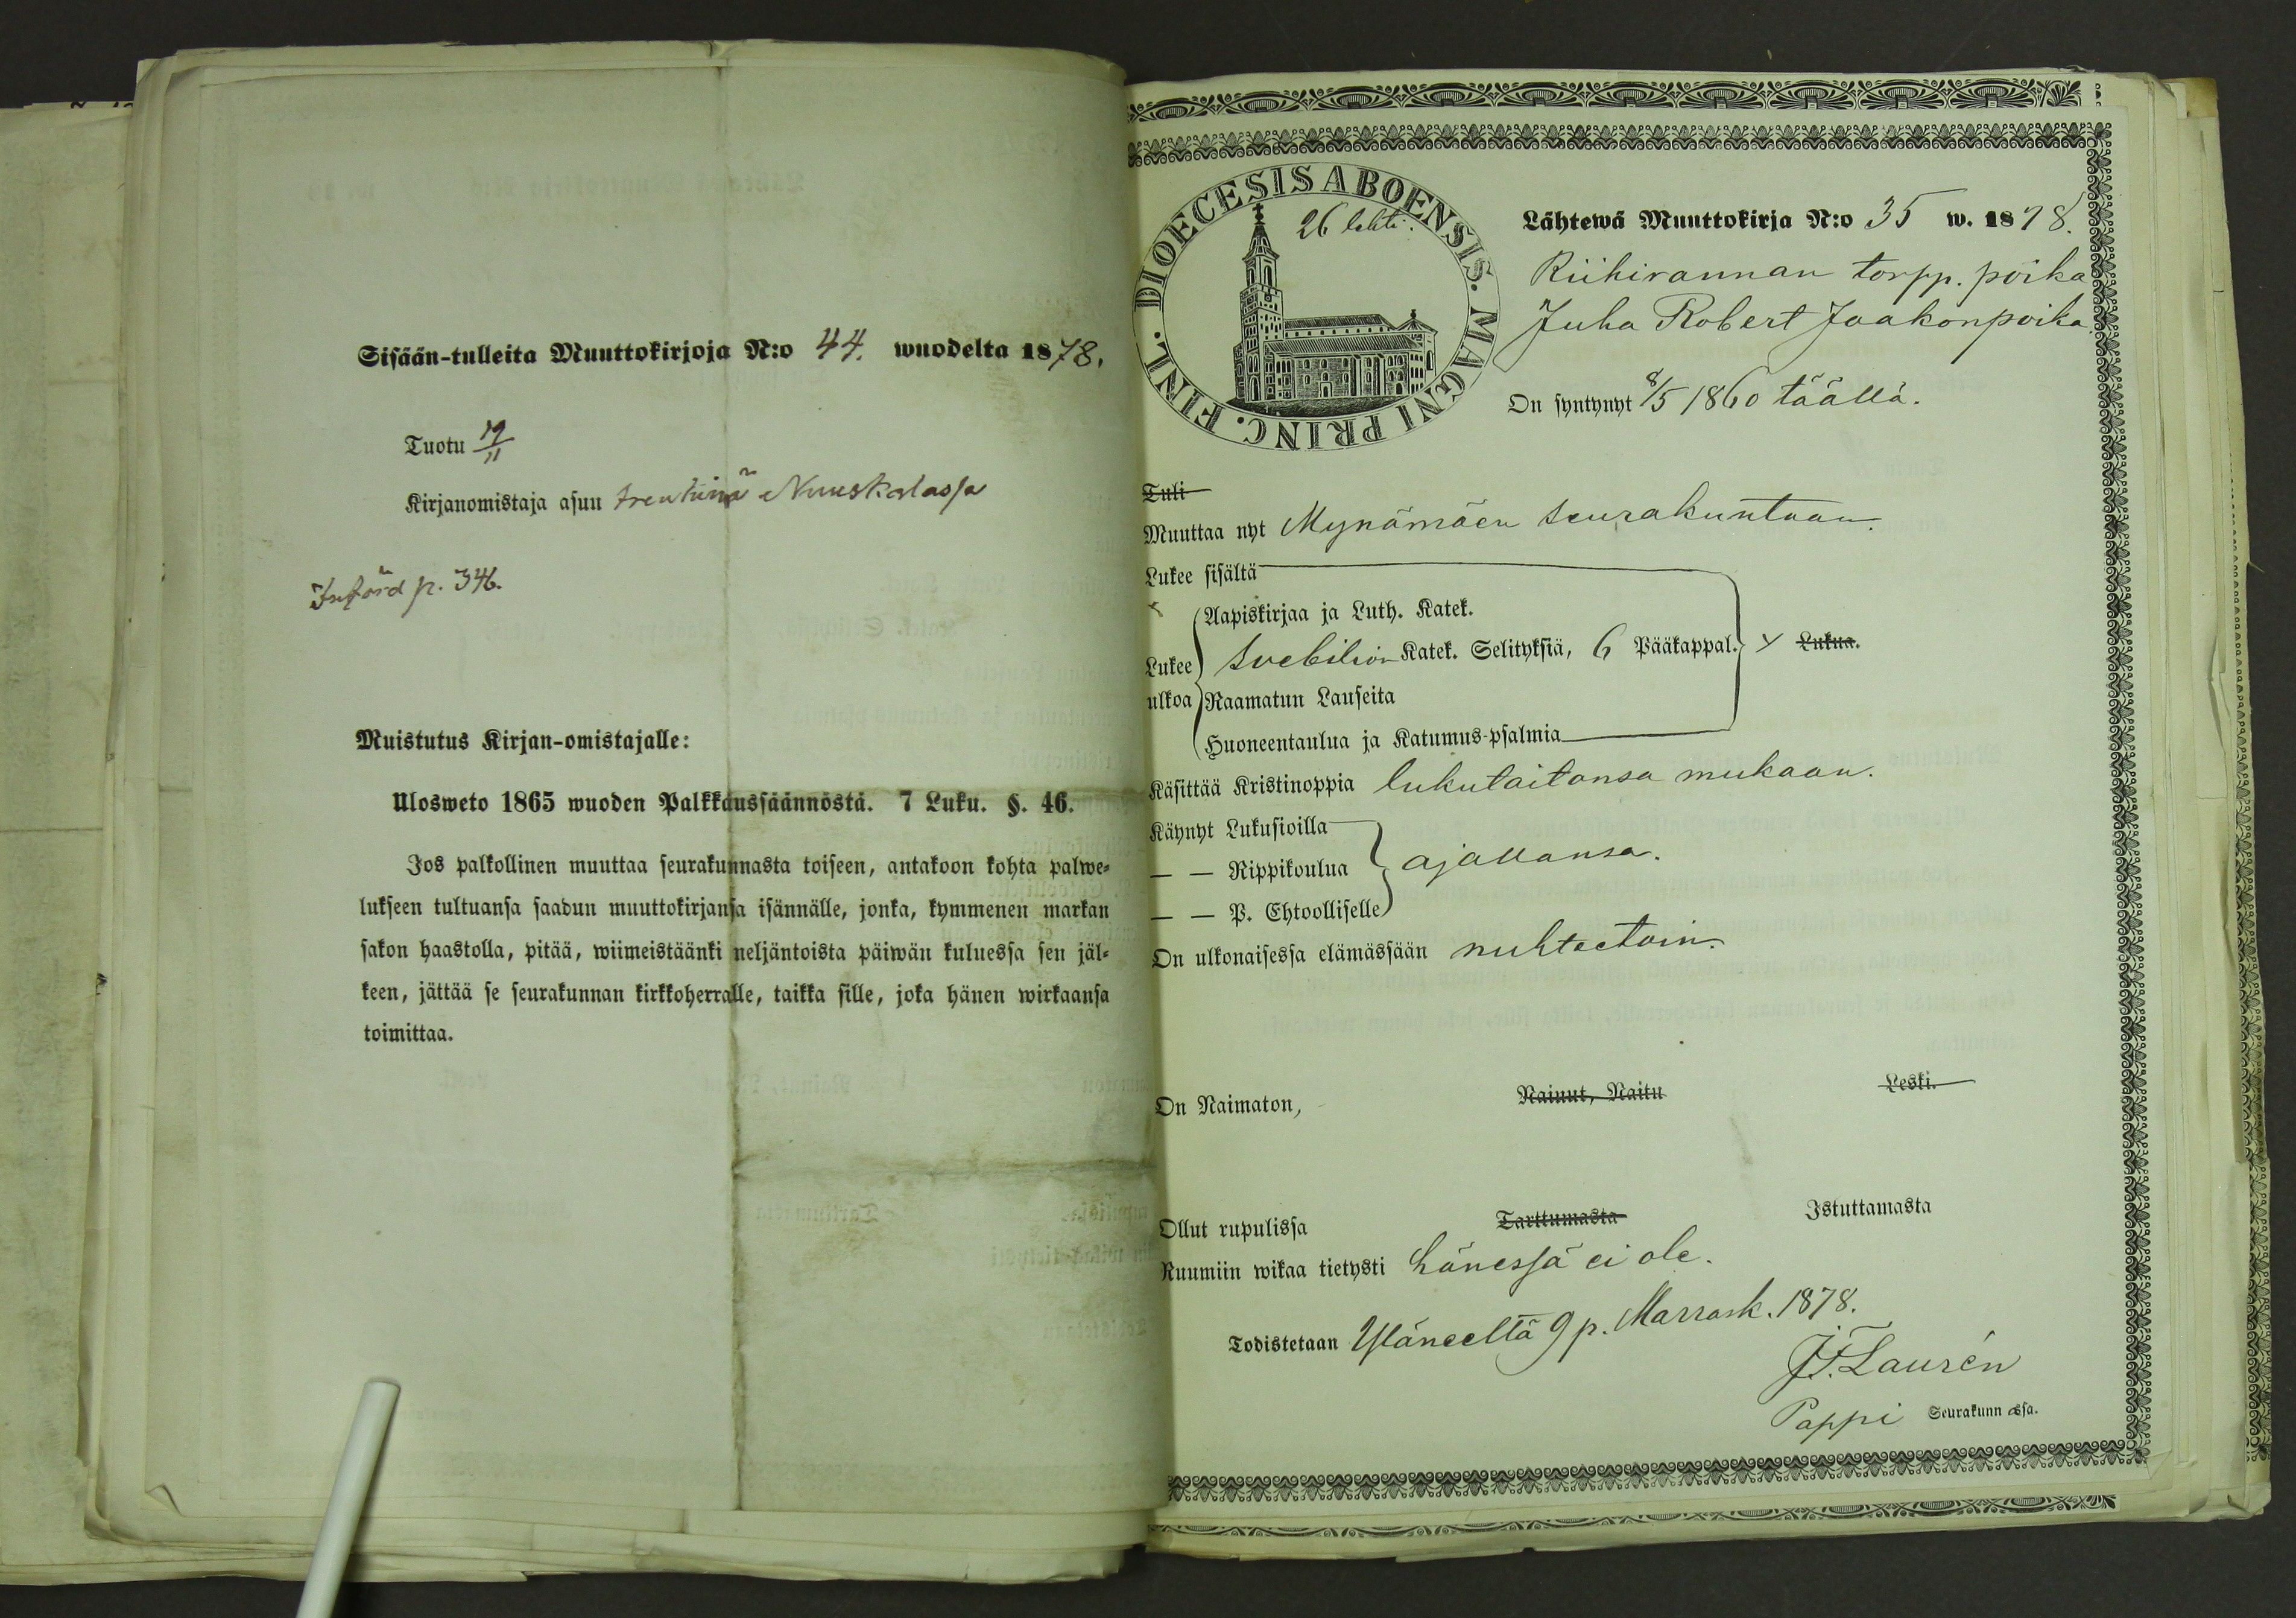 Sisään-tulleita Muuttokirjoja N:o 44. wuodelta 1878.
Tuotu 19/11
Kirjanomistaja asuu trenkinä Nuuskalassa
Införd p. 346.
Muistutus Kirjan-omistajalle:
Ulosweto 1865 wuoden Palkkaussäännöstä. 7 Luku. §. 46.
Jos palkollinen muuttaa seurakunnasta toiseen, antakoon kohta palwe-
lukseen tultuansa saadun muuttokirjansa isännälle, jonka, kymmenen markan
sakon haastolla, pitää, wiimeistäänki neljäntoista päiwän kuluessa sen jäl-
keen, jättää se seurakunnan kirkkoherralle, taikka sille, joka hänen wirkaansa
toimittaa.
DIOECESIS ABOENSIS. MAGNI PRINC. FINL.
26 lehti.
Lähtewä Muuttokirja N:o 35 w. 1878.
Riihirannan torpp. poika
Juha Robert Jaakonpoika.
On syntynyt 8/5 1860 täällä.
Tuli
Muuttaa nyt Mynämäen seurakuntaan.
Lukee sisältä
Aapiskirjaa ja Luth. Katek.
Lukee Svebilion Katek. Selityksiä, 6 Pääkappal. y Lukua.
ulkoa Raamatun Lauseita
Huoneentaulua ja Katumus-psalmia
Käsittää Kristinoppia lukutaitonsa mukaan.
Käynyt Lukusioilla
— — Rippikoulua ajallansa.
— — P. Ehtoolliselle
On ulkonaisessa elämässään nuhteetoin.
On Naimaton, Nainut, Naitu Leski.
Ollut rupulissa Tarttumasta Istuttamasta
Ruumiin wikaa tietysti hänessä ei ole.
Todistetaan Yläneeltä 9 p. Marrask. 1878.
J.F. Laurén
Pappi Seurakunnassa.